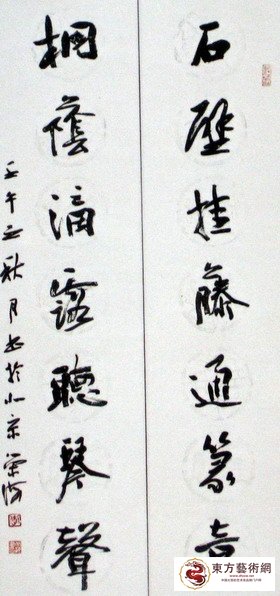 石壁挂藤通篆意
桐蔭滴露聽琴聲
壬午之秋月书於北京
東方藝術網